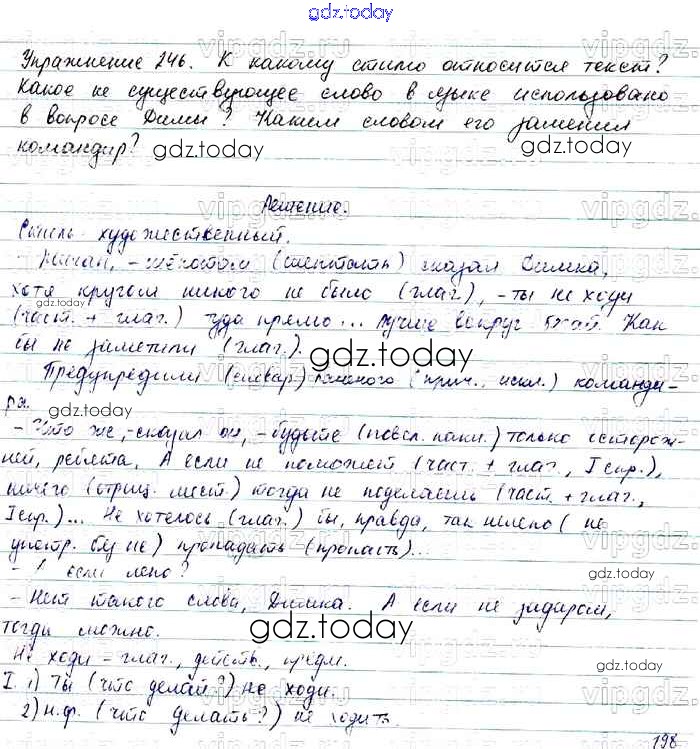 gdz.today
Упражнение 246. К какому стилю относится текст?
Какое не существующее слово в языке использовано
в вопросе Димы? Каким словом его заменил
командир?
gdz.today gdz.today
Решение.
Стиль художественный.
- Жиган, - шёпотом (шептать) сказал Димка,
хотя кругом никого не было (глаг), - ты не ходи
(част. + глаг.) туда прямо... лучше вокруг бежай. Как
gdz.today
бы не заметили (глаг.).
gdz.today
Предупредили (словар) раненого (прич., искл.) команди-
ра.
gdz.today
- Что же, - сказал он, - будьте (повел. накл.) только осторож-
ней, ребята. А если не поможет (част. + глаг., I спр.),
ничего (отриц. мест.) тогда не поделаешь (част. + глаг.,
I спр.)... Не хотелось (глаг.) бы, правда, так нелепо ( не
употр. без не) пропадать (пропасть)...
gdz.today
- А если лепо?
- Нет такого слова, Димка. А если не задаром,
тогда можно.
gdz.today
Не ходи - глаг., действ. предм.
gdz.today
I. 1) Ты (что делай?) не ходи.
2) н.ф. (что делать?) не ходить.
198
vipgdz.ru